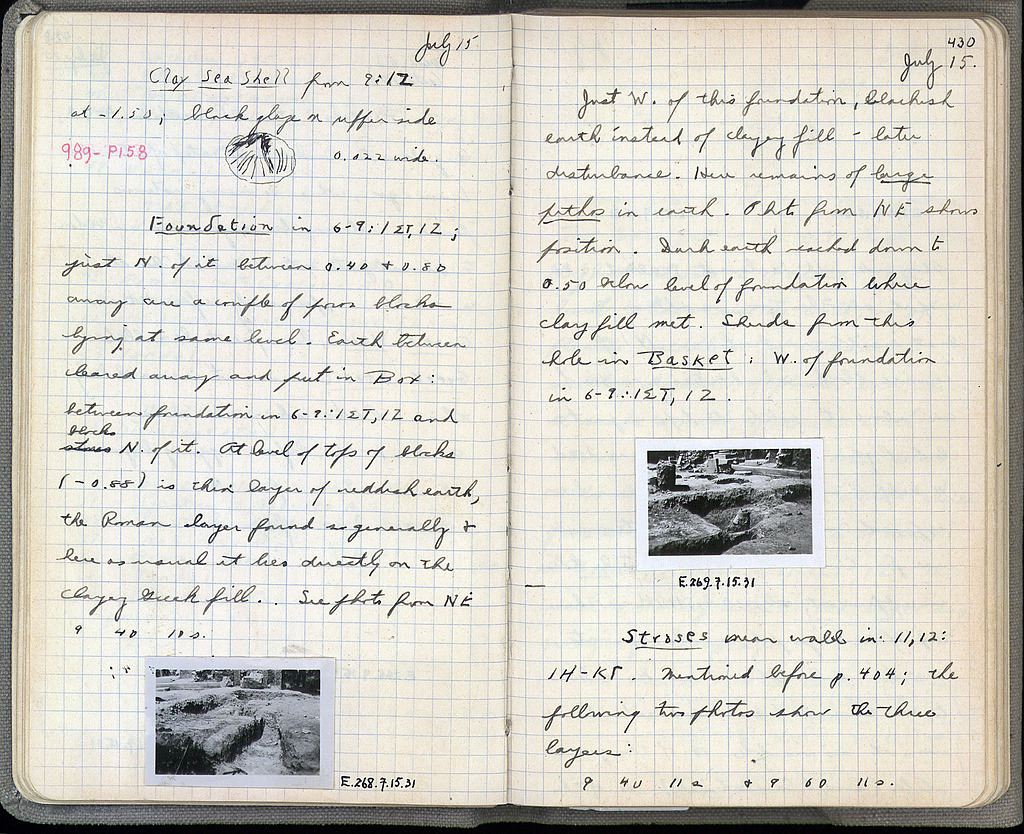 July 15
Clay Sea Shell from 9:12
at -1.50; black glaze on upper side
989-P158
0.022 wide.
Foundation in 6-9:1ΣT,12;
just N. of it between 0.40 & 0.80
away are a couple of poros blocks
lying at same level. Earth between
cleared away and put in Box:
between foundation in 6-9:1ΣT,12 and
blocks
stones N. of it. At level of tops of blocks
(-0.88) is thin layer of reddish earth,
the Roman layer found so generally &
here as usual it lies directly on the
clayey Greek fill.. See photo from NE
9 40 10 s.
E.268.7.15.31
430
July 15.
Just W. of this foundation, blackish
earth instead of clayey fill - later
disturbance. Here remains of large
pithos in earth. Photo from NE shows
position. Dark earth reached down to
0.50 below level of foundation where
clay fill met. Sherds from this
hole in Basket: W. of foundation
in 6-9:1ΣT,12.
E.269.7.15.31
Stroses near wall in 11,12:
1H-KΓ. Mentioned before p. 404; the
following two photos show the three
layers:
9 40 11 s & 9 60 11 s.